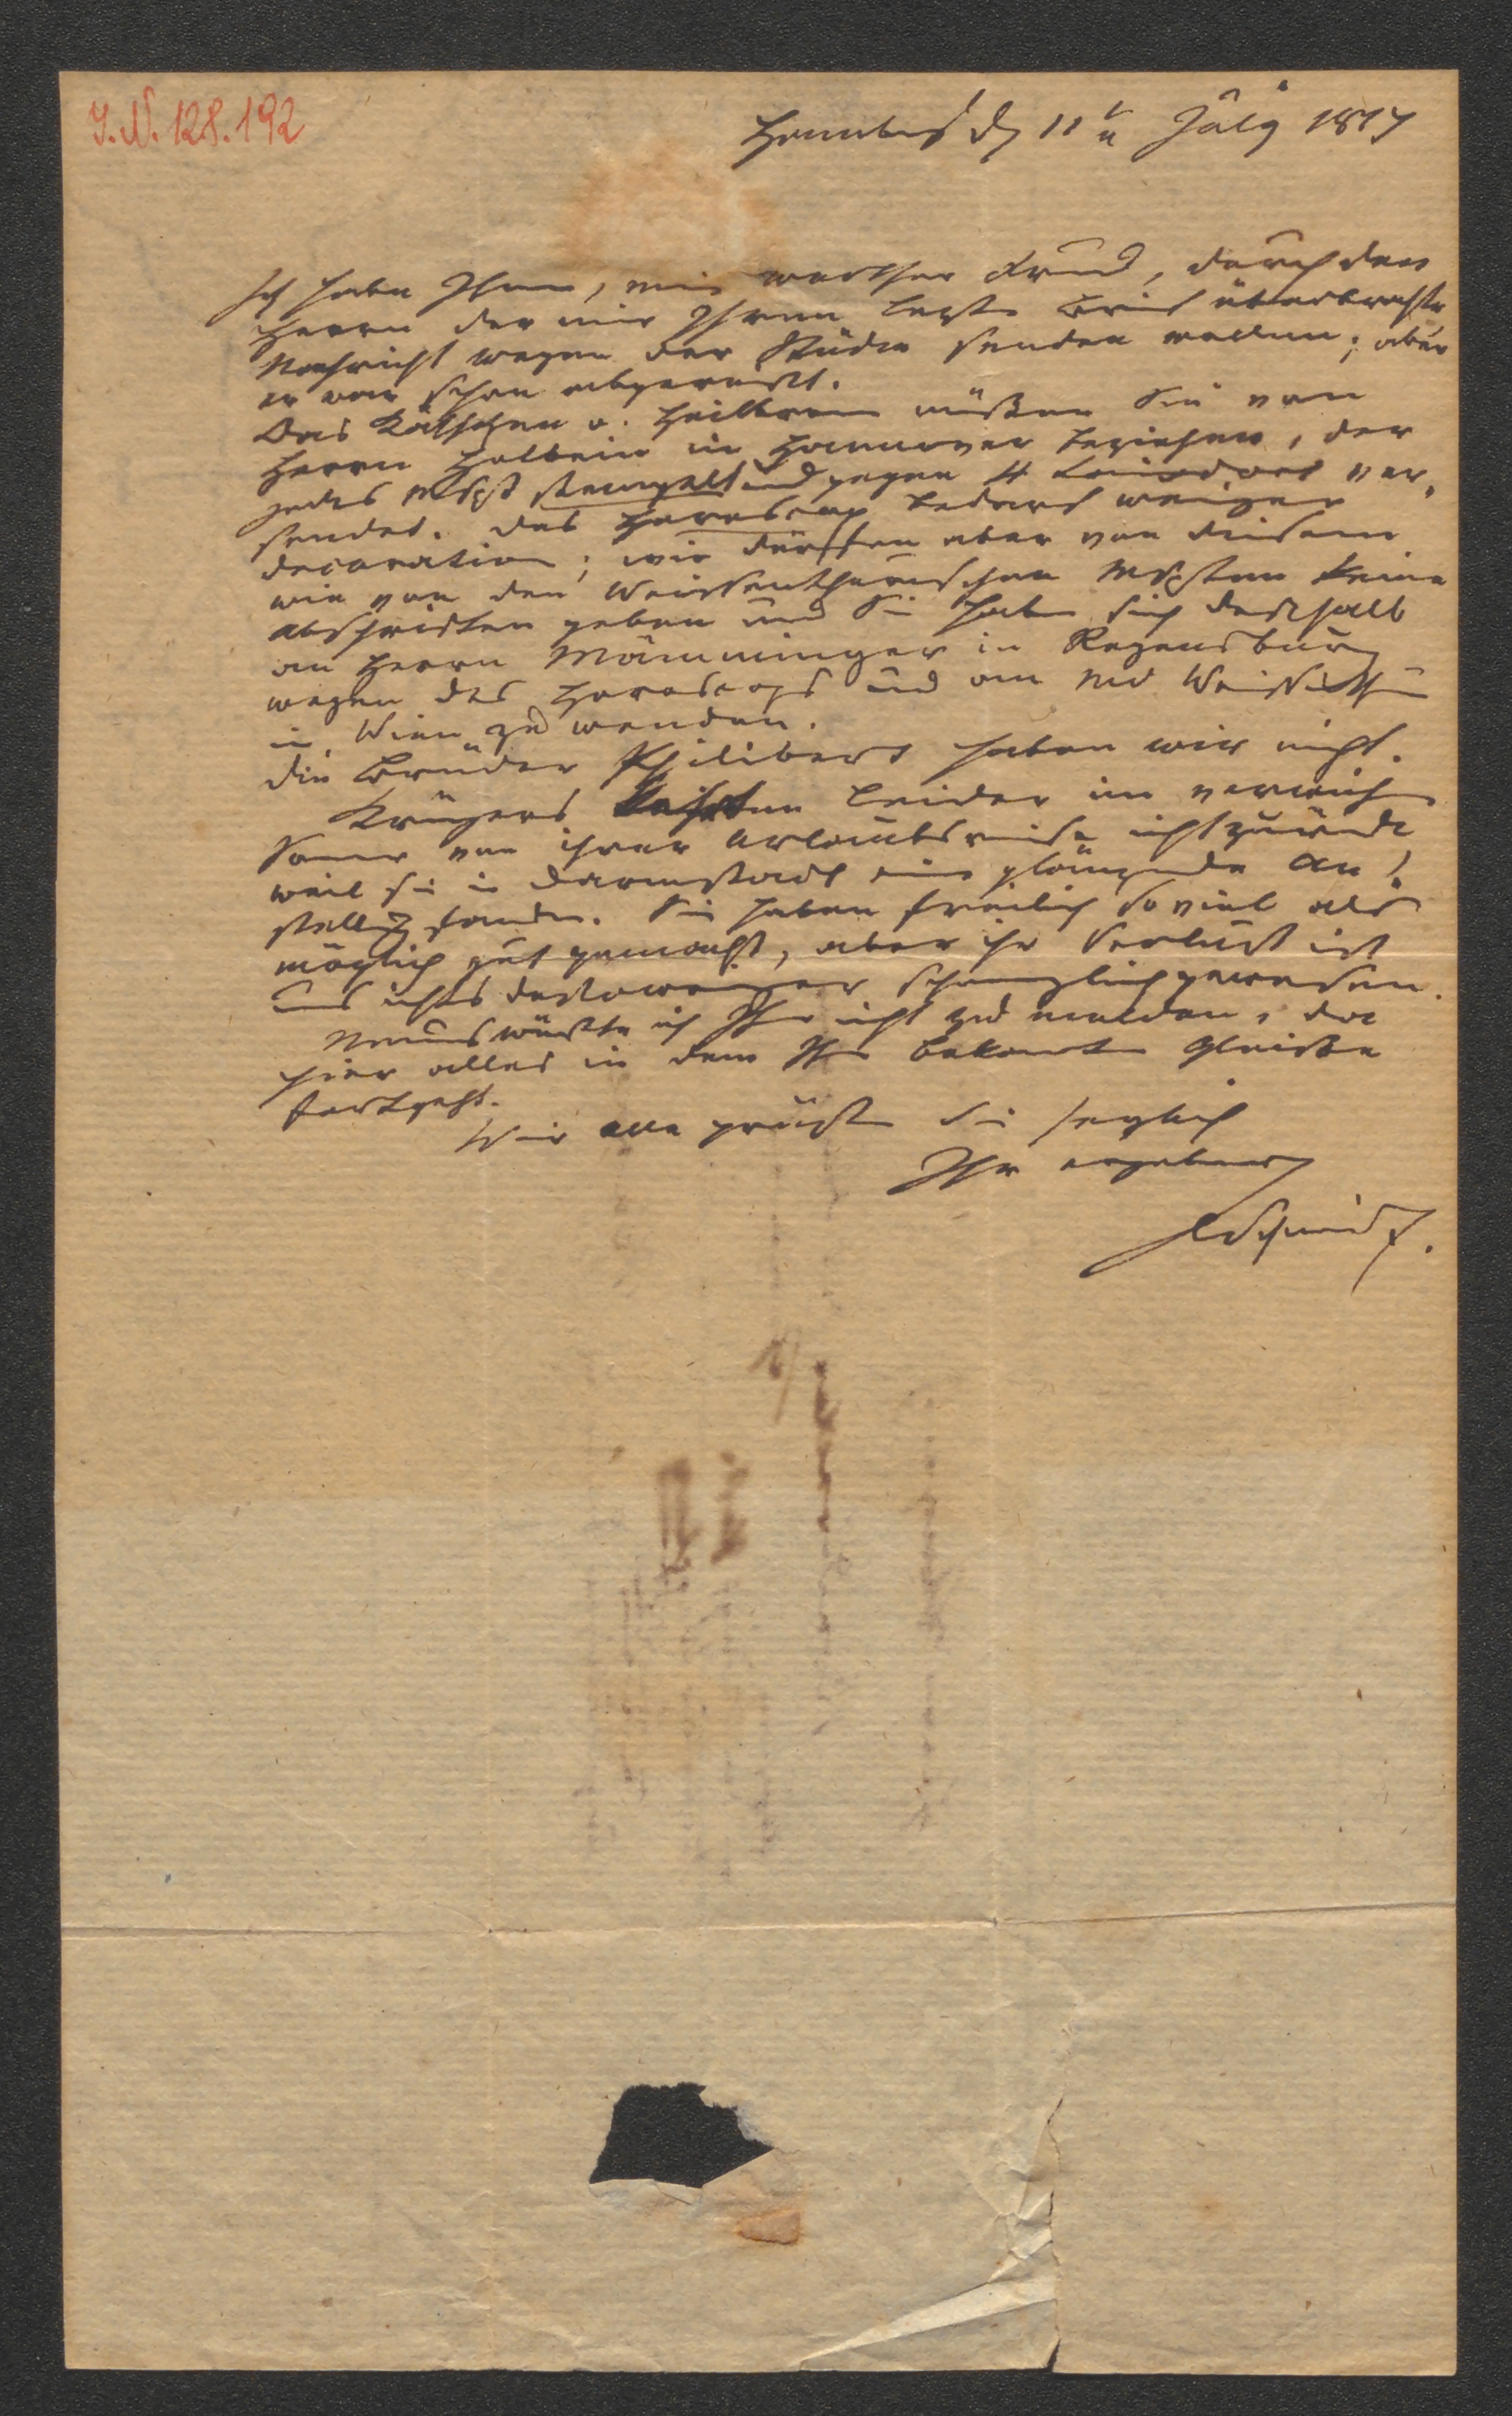 I. N. 128.192
Hamburg d 11 July 1817
Ich habe Ihnen, mein werther Freund, durch den
Herrn der mir Ihren letzten Brief überbrachte
Nachricht wegen der Stücke senden wollen; aber
er war schon abgereist.
Das Käthchen v. Heilbronn müßen Sie von
Herrn Holbein in Hannover beziehen, der
jedes Mscpt stempelt und gegen 4 Louisdor ver-
sendet. Das Horoscop bedarf weniger
decoration; wir dürffen aber von diesem
wie von den Weissenthurnschen Mscpten keine
abschriften geben und Sie haben sich deshalb
an Herrn Mämminger in Regensburg
wegen des Horoscops und an Md Weissenth
in Wien zu wenden.
Die Brüder Philibert haben wir nicht.
Krügers kehrten leider im vorigen
Somer von ihrer Urlaubsreise nicht zurück
weil sie in Darmstadt eine glänzende An-
stellg fanden. Sie haben freilich so viel als
möglich gut gemacht, aber ihr Verlust ist
uns nichts destoweniger schmerzlich gewesen.
Neues wüßte ich Ihnen nicht zu melden, da
hier alles in dem Ihnen bekannten Gleise
fortgeht.
Wir alle grüßen Sie herzlich
Ihr ergebener
Schmidt.